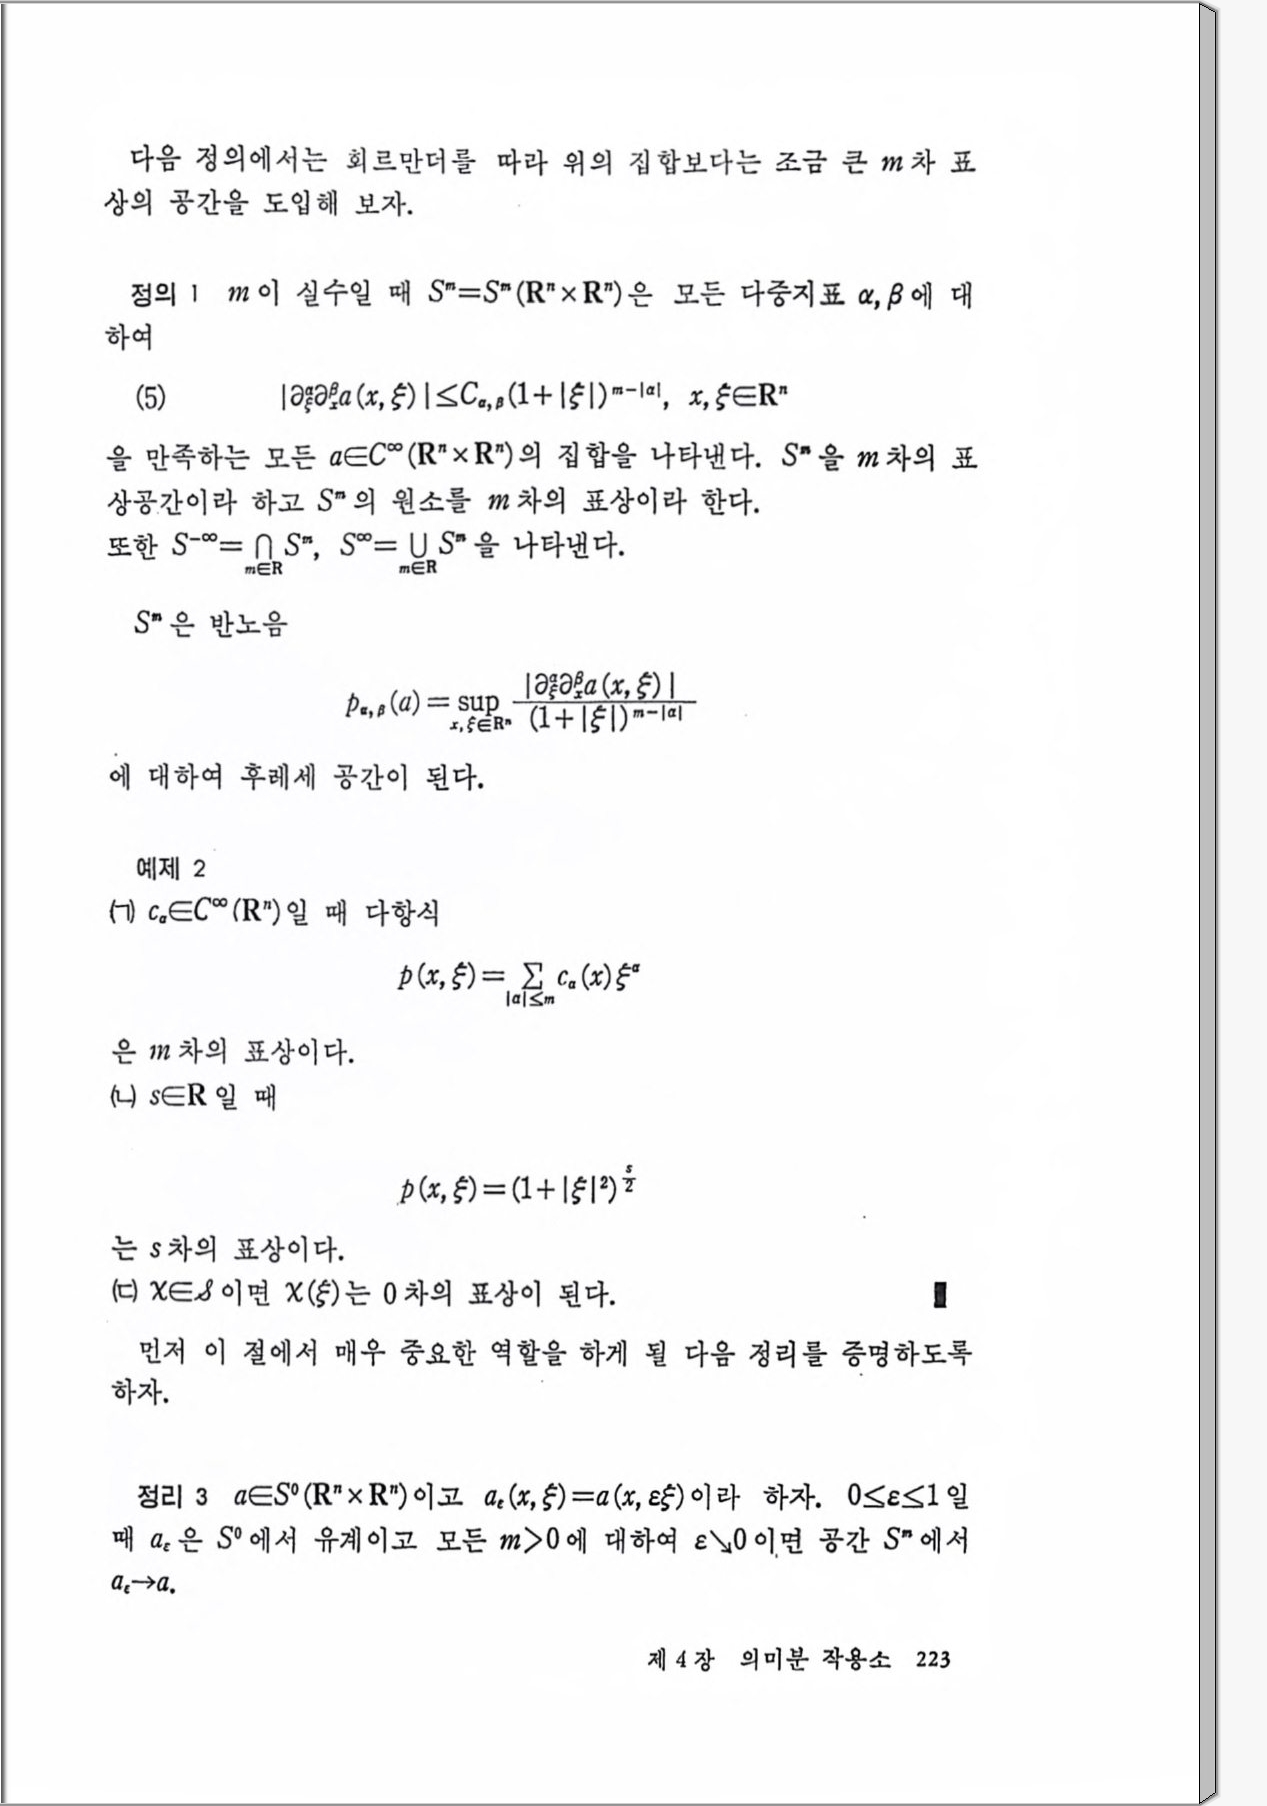 다음 정의에서는 회르만더를 따라 위의 집합보다는 조금 큰 m차 표
상의 공간을 도입해 보자.
정의 1 m이 실수일 때 Sᵐ=Sᵐ(Rⁿ×Rⁿ)은 모든 다중지표 α, β에 대
하여
(5) |∂_ξ^α ∂_x^β a(x, ξ)|≤C_{α,β}(1+|ξ|)^{m-|α|}, x, ξ∈Rⁿ
을 만족하는 모든 a∈C^∞(Rⁿ×Rⁿ)의 집합을 나타낸다. Sᵐ을 m차의 표
상공간이라 하고 Sᵐ의 원소를 m차의 표상이라 한다.
또한 S^{-∞}=∩_{m∈R} Sᵐ, S^∞=∪_{m∈R} Sᵐ을 나타낸다.
Sᵐ은 반노음
p_{α,β}(a)=sup_{x,ξ∈Rⁿ} |∂_ξ^α ∂_x^β a(x, ξ)| / (1+|ξ|)^{m-|α|}
에 대하여 후레세 공간이 된다.
예제 2
(ㄱ) c_α∈C^∞(Rⁿ)일 때 다항식
p(x, ξ)=∑_{|α|≤m} c_α(x)ξ^α
은 m차의 표상이다.
(ㄴ) s∈R일 때
p(x, ξ)=(1+|ξ|²)^{s/2}
는 s차의 표상이다.
(ㄷ) χ∈𝒮이면 χ(ξ)는 0차의 표상이 된다.
먼저 이 절에서 매우 중요한 역할을 하게 될 다음 정리를 증명하도록
하자.
정리 3 a∈S⁰(Rⁿ×Rⁿ)이고 a_ε(x, ξ)=a(x, εξ)이라 하자. 0≤ε≤1일
때 a_ε은 S⁰에서 유계이고 모든 m>0에 대하여 ε↘0이면 공간 Sᵐ에서
a_ε→a.
제 4 장 의미분 작용소 223